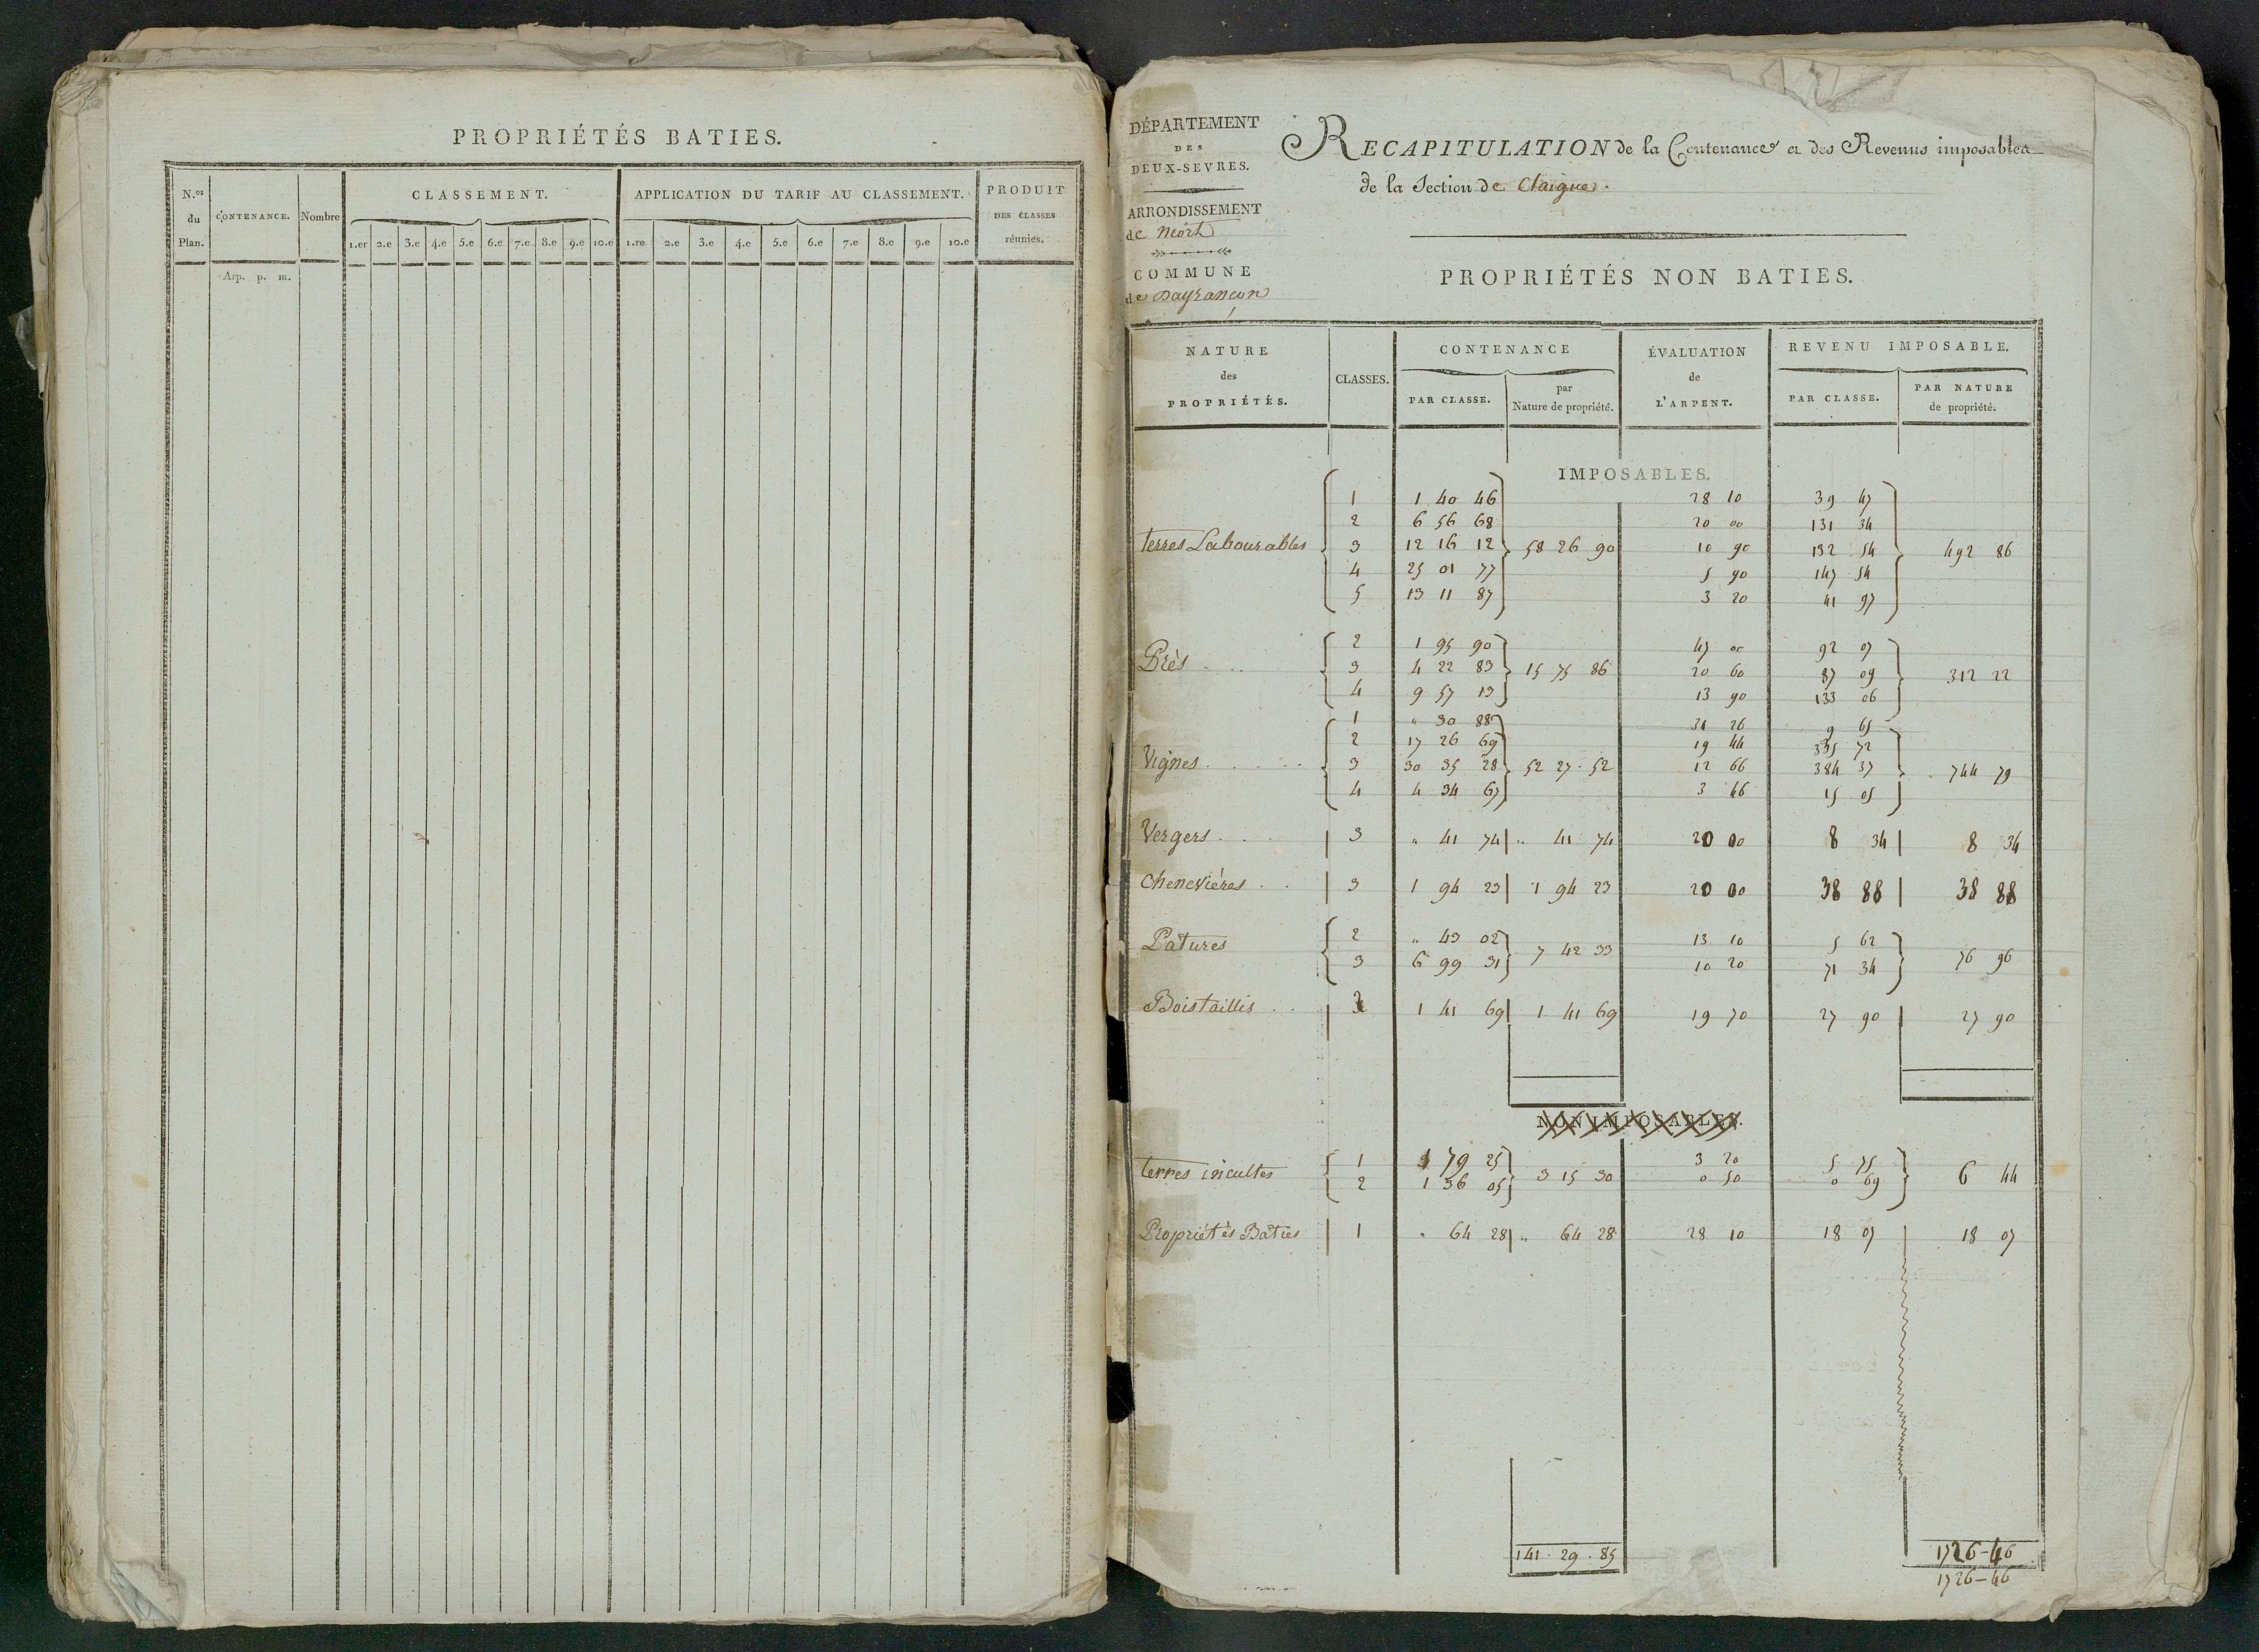 PROPRIÉTÉS BATIES.
N.os du Plan. CONTENANCE. Nombre CLASSEMENT. APPLICATION DU TARIF AU CLASSEMENT. PRODUIT DES CLASSES réunies.
1.er 2.e 3.e 4.e 5.e 6.e 7.e 8.e 9.e 10.e 1.re 2.e 3.e 4.e 5.e 6.e 7.e 8.e 9.e 10.e
Arp. p. m.
DÉPARTEMENT
DES
DEUX-SEVRES.
ARRONDISSEMENT
de Niort
COMMUNE
de Vayrançon
RECAPITULATION de la Contenance et des Revenus imposables
de la Section de Claigue.
PROPRIÉTÉS NON BATIES.
NATURE des PROPRIÉTÉS. CLASSES. CONTENANCE ÉVALUATION de L'ARPENT. REVENU IMPOSABLE.
PAR CLASSE. par Nature de propriété. PAR CLASSE. PAR NATURE de propriété.
IMPOSABLES.
1 1 40 46 28 10 39 47
2 6 56 68 20 00 131 34
terres Labourables 3 12 16 12 58 26 90 10 90 132 54 492 86
4 25 01 77 5 90 147 54
5 13 11 87 3 20 41 97
2 1 95 90 47 00 92 07
Prés 3 4 22 83 15 75 86 20 60 87 09 312 22
4 9 57 13 13 90 133 06
1 " 30 88 31 26 9 65
2 17 26 69 19 44 335 72
Vignes 3 30 35 28 52 27 52 12 66 384 37 744 79
4 4 34 67 3 46 15 05
Vergers 3 " 41 74 " 41 74 20 00 8 34 8 34
Chenevières 3 1 94 23 1 94 23 20 00 38 88 38 88
2 " 43 02 13 10 5 62
Patures 7 42 33 76 96
3 6 99 31 10 20 71 34
Bois taillis 2 1 41 69 1 41 69 19 70 27 90 27 90
NON IMPOSABLES.
1 1 79 25 3 20 5 75
terres incultes 3 15 30 6 44
2 1 36 05 0 50 0 69
Propriétés Baties 1 " 64 28 " 64 28 28 10 18 07 18 07
141 . 29 . 85 1726-46
1726-46